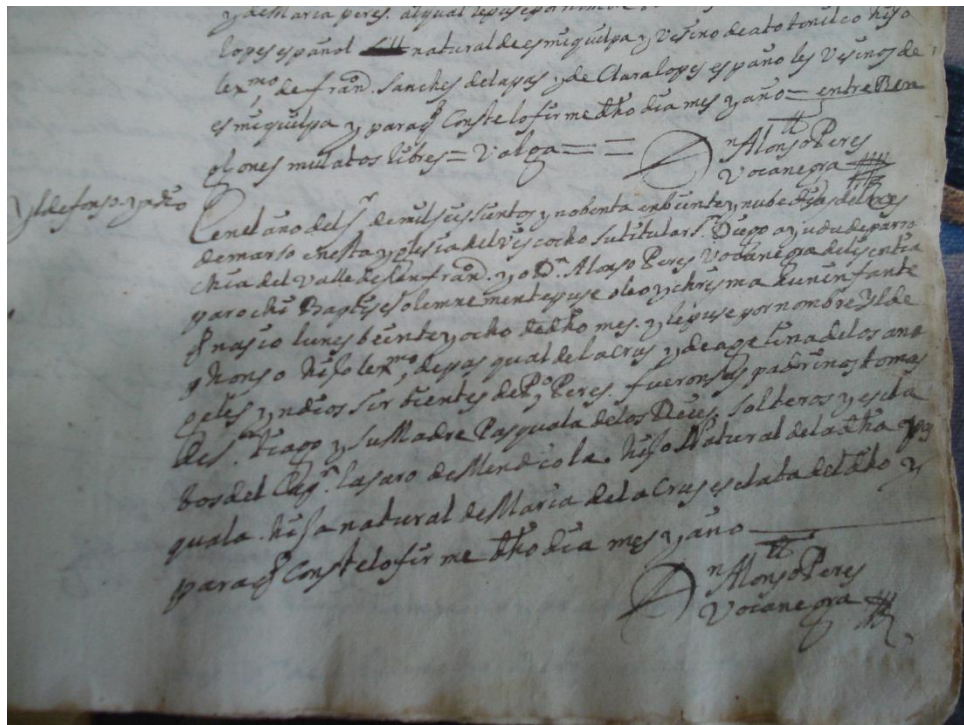 y de Maria peres. al qual le puse por nombre
lopes español natural de esmiquilpa y vesino de atotonilco hijo
lexmo, de frān. Sanches delapas y de Clara lopes españoles Vesinos de
esmiquilpa y paraq Conste lofirme dho dia mes y año = entre Ren
glones mulatos libres = Valga = =
Dn Alonso Peres
Vocanegra
Yldefonso yndio
En el año del Sr de mil seissientos y nobenta en beinte y nube dias del mes
de marso en esta yglesia del Viscocho su titular S. Diego ayuda de parro
chia del Valle de San frān. yo Dn Alonso Peres Vocanegra de lisentia
parochi Baptise solemnemente puse oleo y chrisma a un infante
q nasio lunes beinte y ocho de dho mes. y le puse por nombre Ylde
phonso hijo lexmo, de pasqual de la Crus y de agustina de los ang
geles yndios sirbientes de Po Peres. fueron sus padrinos tomas
de S.tiago y su Madre Pasquala de los Reies, Solteros y escla
bos del Capn. lasaro de Mendiola. hijo Natural de la dha pas
quala. hija natural de Maria de la Crus esclaba del dho y
para q Conste lo firme dho dia mes y año
Dn Alonso Peres
Vocanegra